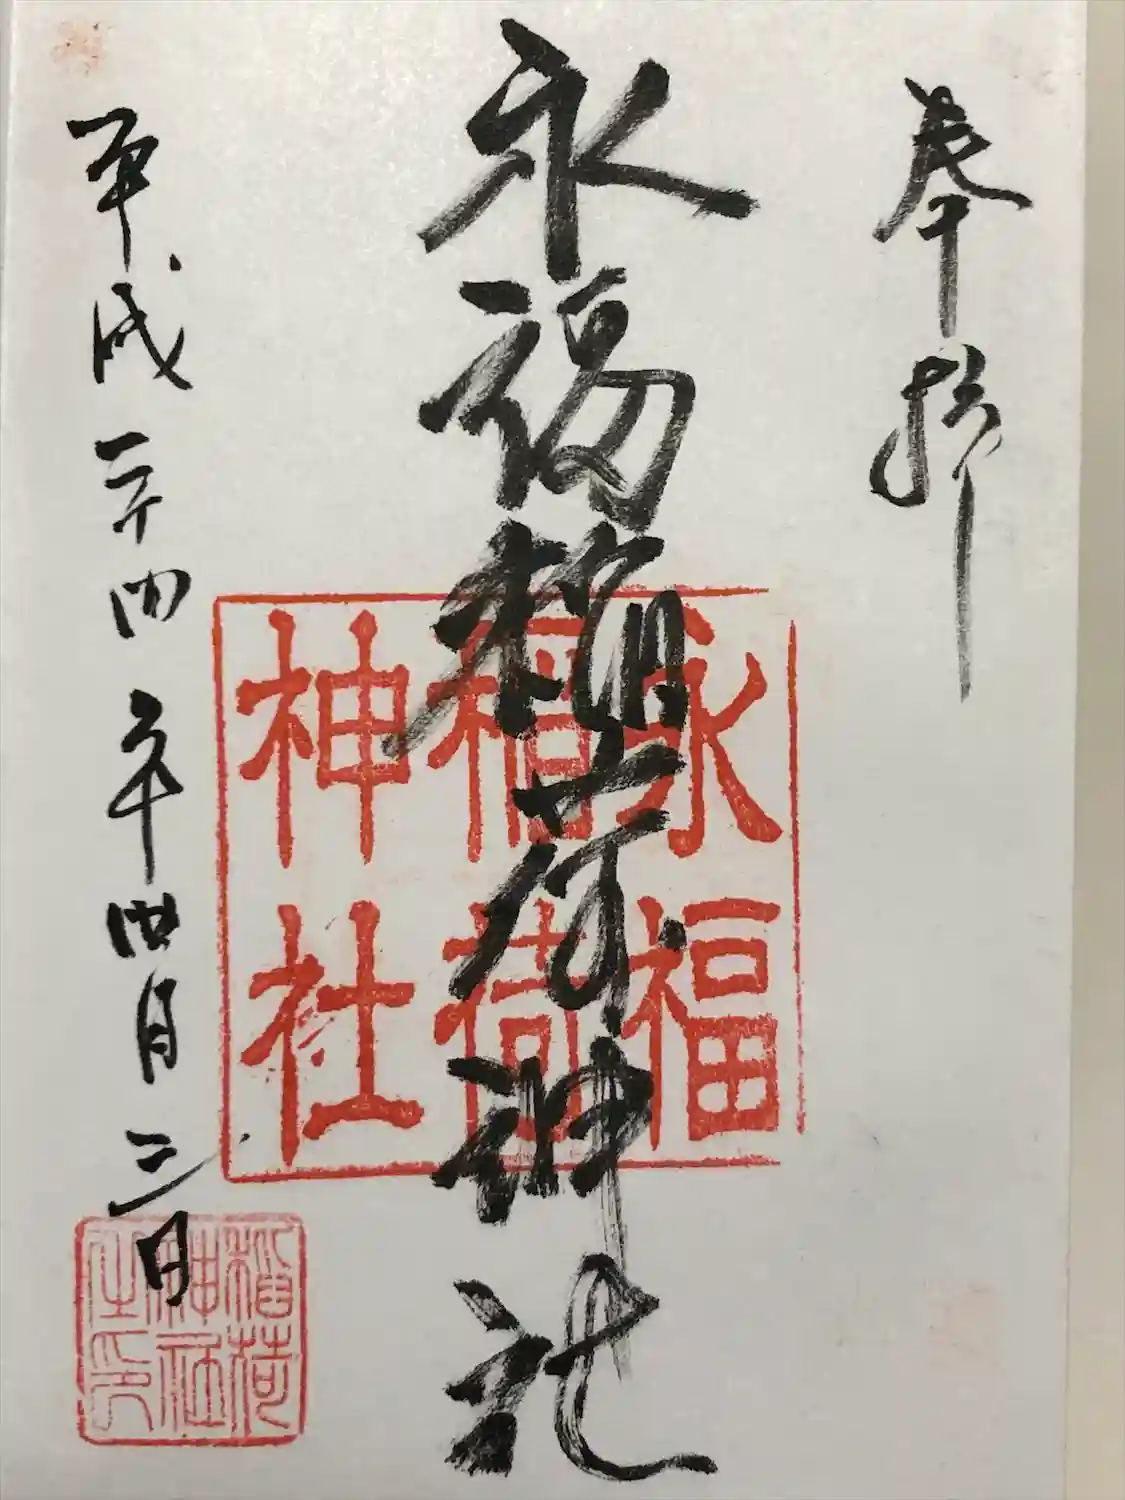 奉拝
永福稲荷神社
永福
稲荷
神社
平成二十四年四月三日
稲荷
神社
之印